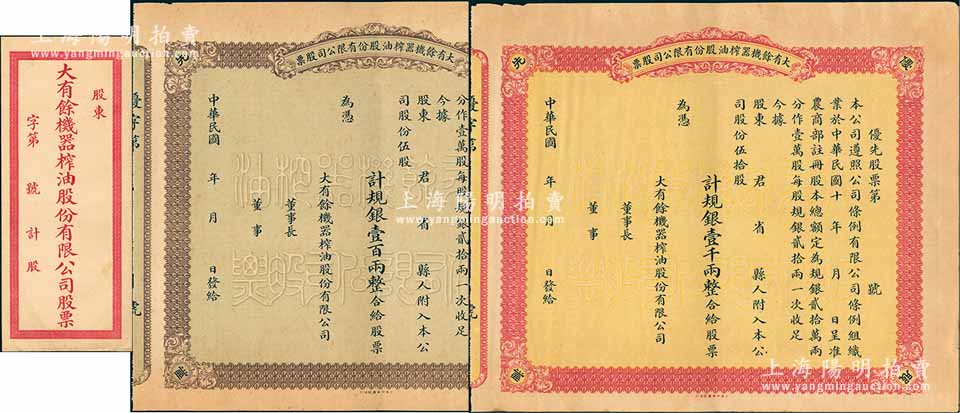 股東
大有餘機器榨油股份有限公司股票
字第　號計　股
大有餘機器榨油股份有限公司股票
分作壹萬股每股規銀貳拾兩一次收足
今據
股東　君　省　縣人附入本公
司股份伍股
計規銀壹百兩整合給股票
為憑
大有餘機器榨油股份有限公司
董事長
董事
中華民國　年　月　日發給
大有餘機器榨油股份有限公司股票
優先股票第　號
本公司遵照公司條例有限公司條例組織
業於中華民國十　年　月　日呈准
農商部註冊股本總額定為規銀貳拾萬兩
分作壹萬股每股規銀貳拾兩一次收足
今據
股東　君　省　縣人附入本公
司股份伍拾股
計規銀壹千兩整合給股票
為憑
大有餘機器榨油股份有限公司
董事長
董事
中華民國　年　月　日發給
上海陽明拍賣
www.yangmingauction.com
上海陽明拍賣
www.yangmingauction.com
上海陽明拍賣
www.yangmingauction.com
上海陽明拍賣
www.yangmingauction.com